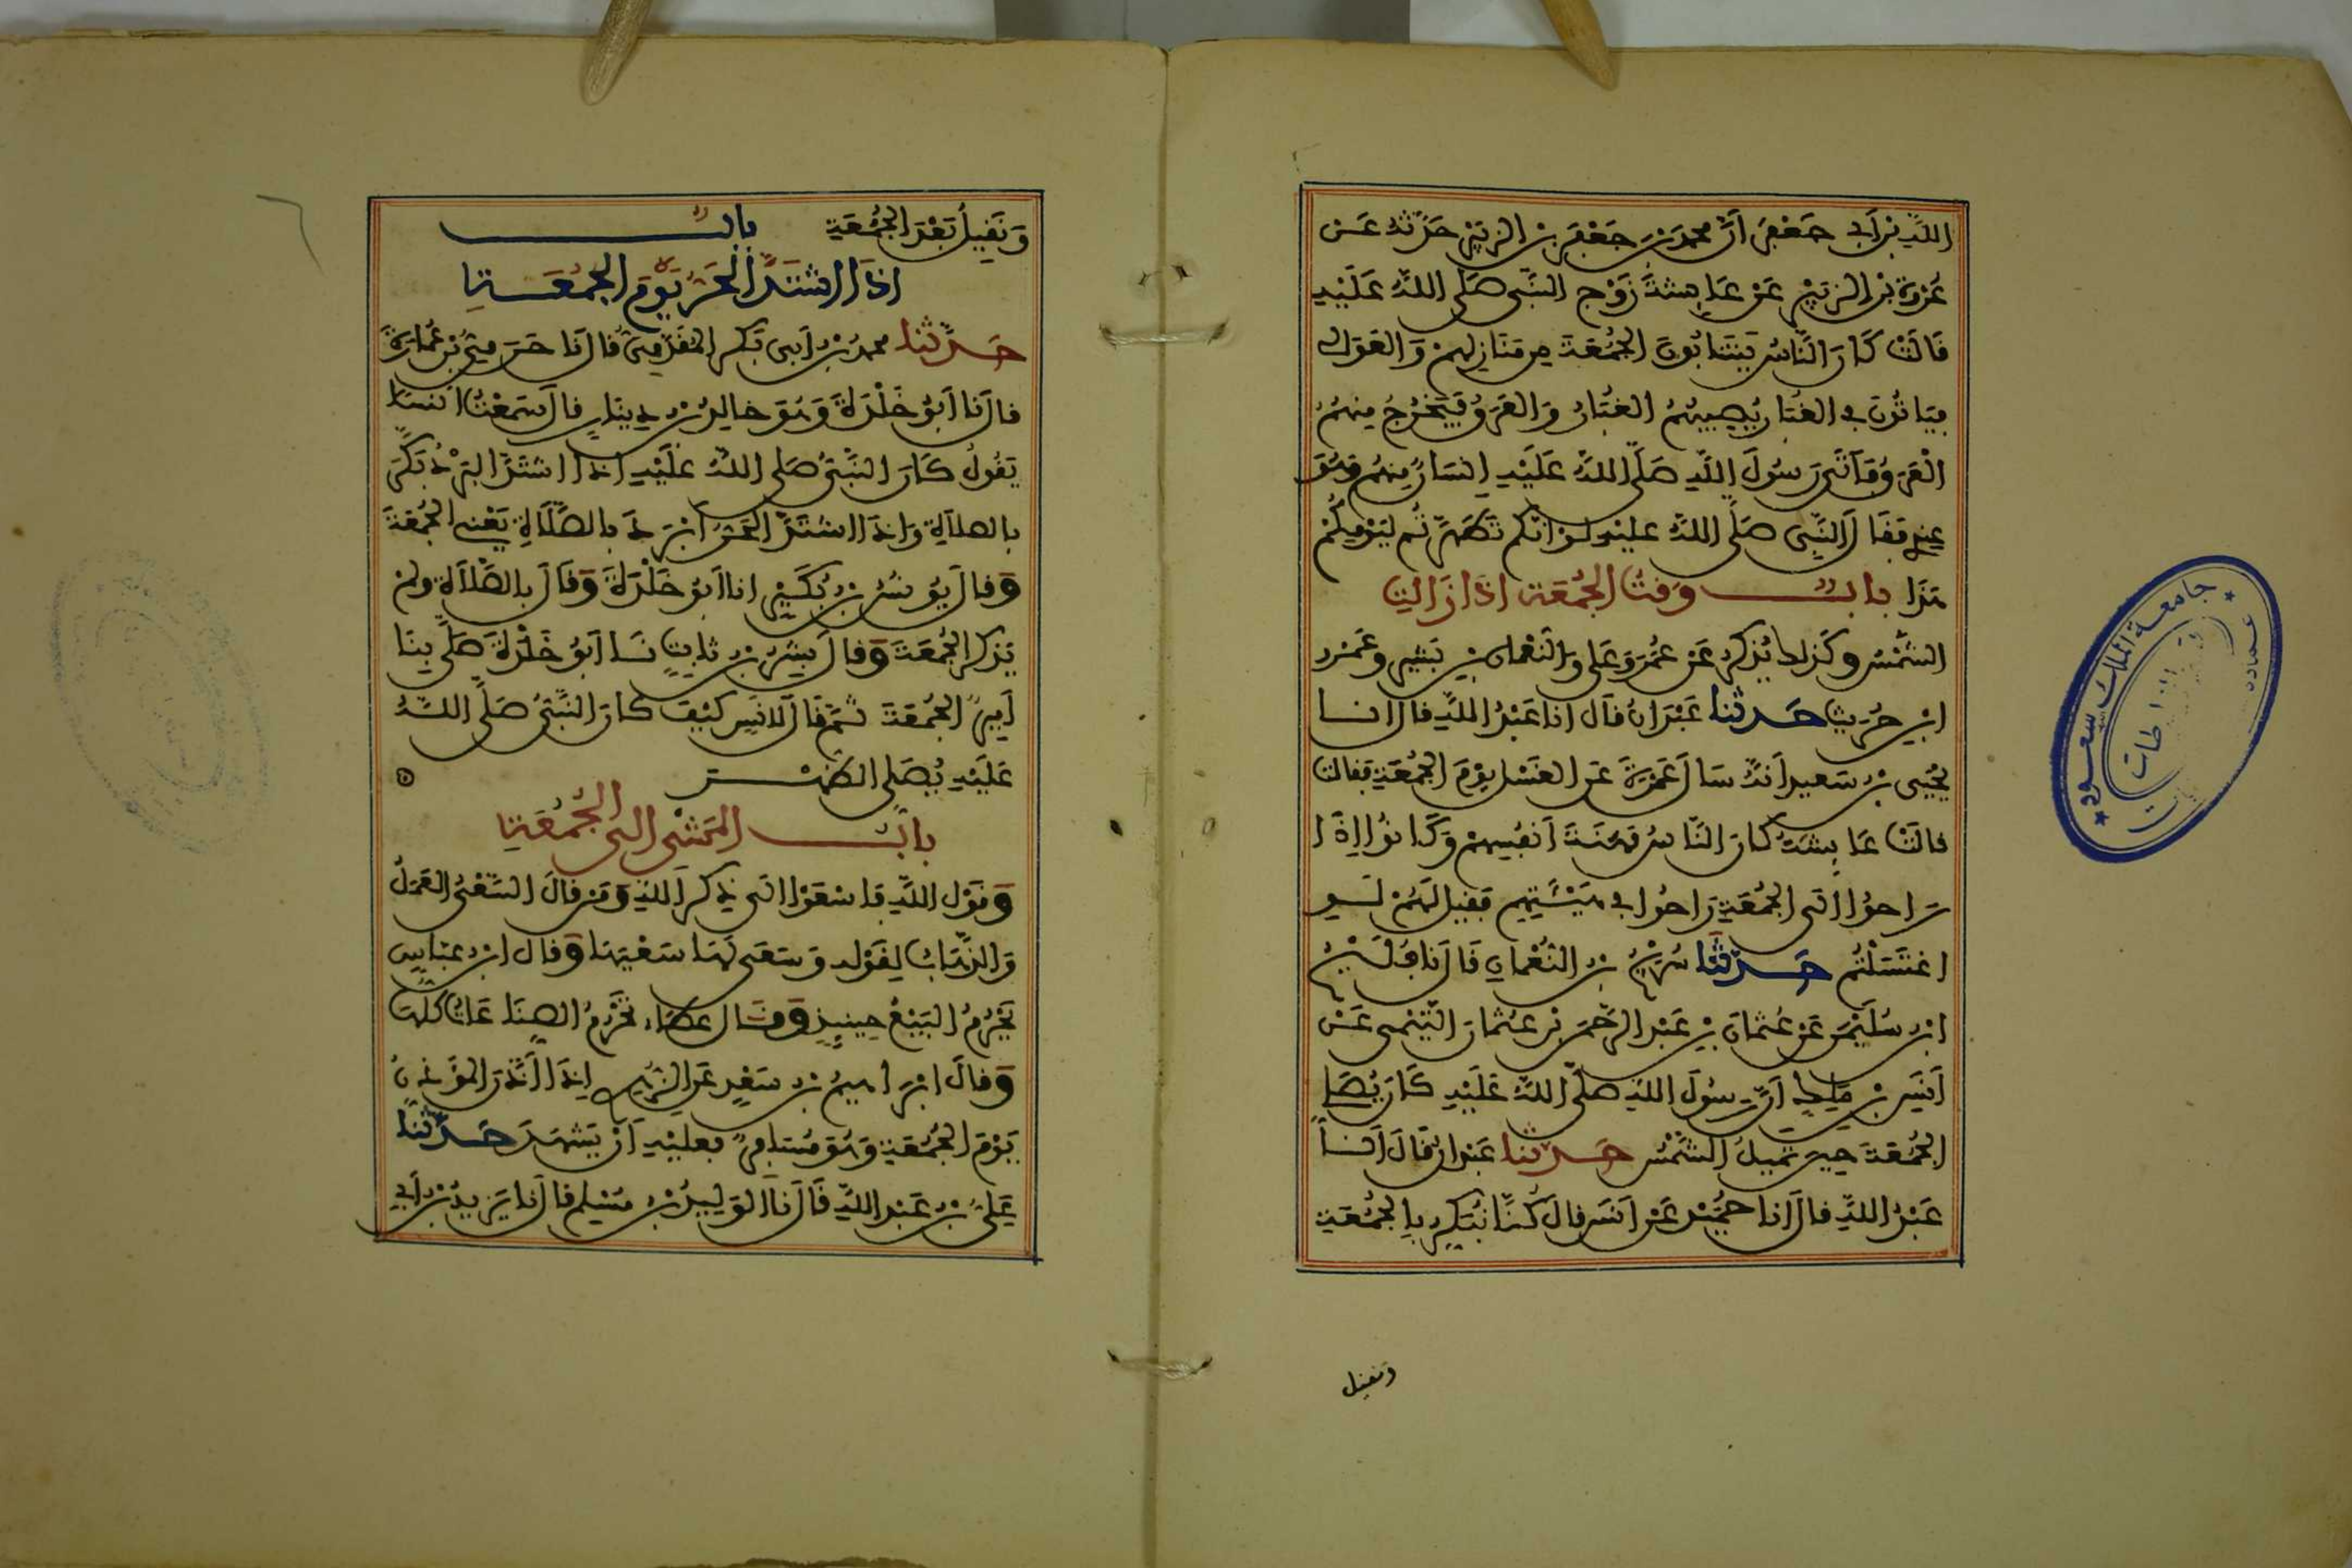 الله بن أبي جعفر أن محمد بن جعفر بن الزبير حدثه عن
عروة بن الزبير عن عايشة زوج النبي صلى الله عليه
قالت كان الناس ينتابون الجمعة من منازلهم والعوالي
فياتون في الغبار يصيبهم الغبار والعرق فيخرج منهم
العرق فأتى رسول الله صلى الله عليه إنسان منهم وهو
عندي فقال النبي صلى الله عليه لو أنكم تطهرتم ليومكم
هذا باب وقت الجمعة إذا زالت
الشمس وكذلك يذكر عن عمر وعلي والنعمان بن بشير وعمرو
ابن حريث حدثنا عبدان قال أنا عبد الله قال انا
يحيى بن سعيد أنه سأل عمرة عن الغسل يوم الجمعة فقالت
قالت عايشة كان الناس مهنة أنفسهم وكانوا إذا
راحوا إلى الجمعة راحوا في هيئتهم فقيل لهم لو
اغتسلتم حدثنا سريج بن النعمان قال نا فليح
ابن سليمن عن عثمان بن عبد الرحمن بن عثمان التيمي عن
أنس بن ملك أن رسول الله صلى الله عليه كان يصلي
الجمعة حين تميل الشمس حدثنا عبدان قال أنا
عبد الله قال أنا حميد عن أنس قال كنا نبكر بالجمعة
ونقيل
ونقيل بعد الجمعة باب
إذا اشتد الحر يوم الجمعة
حدثنا محمد بن أبي بكر المقدمي قال نا حرمي بن عمارة
قال نا أبو خلدة وهو خالد بن دينار قال سمعت انسا
يقول كان النبي صلى الله عليه إذا اشتد البرد بكر
بالصلاة وإذا اشتد الحر أبرد بالصلاة يعني الجمعة
وقال يونس بن بكير انا أبو خلدة وقال بالصلاة ولم
يذكر الجمعة وقال بشر بن ثابت نا أبو خلدة صلى بنا
أمير الجمعة ثم قال لانس كيف كان النبي صلى الله
عليه يصلي الظهر
باب المشي إلى الجمعة
وقول الله فاسعوا إلى ذكر الله ومن قال السعي العمل
والذهاب لقوله وسعى لها سعيها وقال ابن عباس
يحرم البيع حينيذ وقال عطاء تحرم الصناعات كلها
وقال ابرهيم بن سعد عن الزهري إذا أذن المؤذن
يوم الجمعة وهو مسافر فعليه أن يشهد حدثنا
علي بن عبد الله قال نا الوليد بن مسلم قال نا يزيد بن أبي
جامعة الملك سعود
عمادة